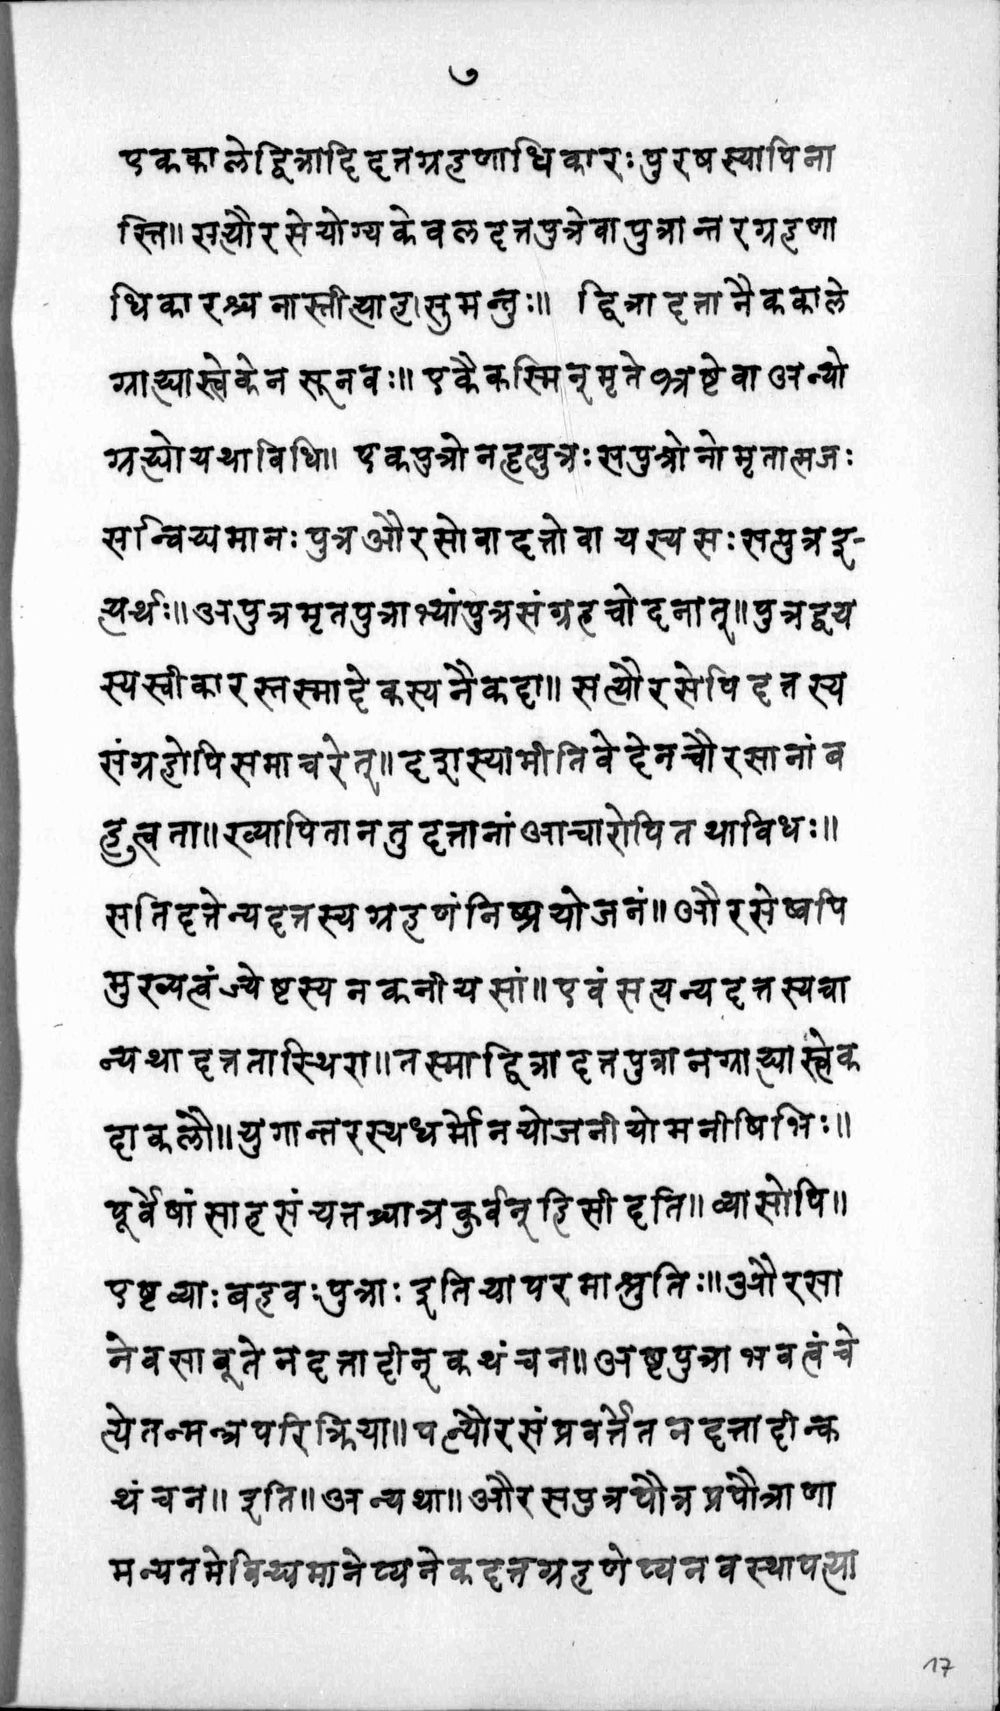 ७
एककालेद्वित्रादिदत्तग्रहणाधिकारःपुरषस्यापिना
स्ति॥सत्यौरसेयोग्यकेवलदत्तपुत्रेवापुत्रान्तरग्रहणा
धिकारश्चनास्तीत्याह।सुमन्तुः॥ द्वित्रादत्तानैककाले
ग्राह्यास्त्वेकेनसूनवः॥एकैकस्मिन्मृतेभ्रष्टेवाअन्यो
ग्रह्योयथाविधि॥ एकपुत्रोनह्यपुत्रःसपुत्रोनोमृतात्मजः
सन्विद्यमानःपुत्रऔरसोवादत्तोवायस्यसःसत्पुत्रइ-
त्यर्थः॥अपुत्रमृतपुत्राभ्यांपुत्रसंग्रहचोदनात्॥पुत्रद्वय
स्यस्वीकारस्तस्मादेकस्यनैकदा॥सत्यौरसेपिदत्तस्य
संग्रहोपिसमाचरेत्॥दशास्यामीतिवेदेनचौरसानांब
हुत्वता॥ख्यापितानतुदत्तानांआचारोपितथाविधः॥
सतिदत्तेन्यदत्तस्यग्रहणंनिष्प्रयोजनं॥औरसेष्वपि
मुख्यत्वंज्येष्टस्यनकनीयसां॥एवंसत्यन्यदत्तस्यचा
न्यथादत्ततास्थिरा॥तस्माद्वित्रादत्तपुत्रानग्राह्यास्त्वेक
दाकलौ॥युगान्तरस्यधर्मोनयोजनीयोमनीषिभिः॥
पूर्वेषांसाहसंयत्तथात्रकुर्वन्हिसीदति॥व्यासोपि॥
एष्टव्याःबहवःपुत्राःइतियापरमाश्रुतिः॥औरसा
नेवसाब्रूतेनदत्तादीन्कथंचन॥अष्टपुत्राभवत्वंचे
त्येतन्मन्त्रपरिक्रिया॥पत्न्यौरसंप्रवर्त्तेतनदत्तादीन्क
थंचन॥इति॥अन्यथा॥औरसपुत्रपौत्रप्रपौत्राणा
मन्यतमेविद्यमानेप्यनेकदत्तग्रहणेप्यनवस्थापत्या
17